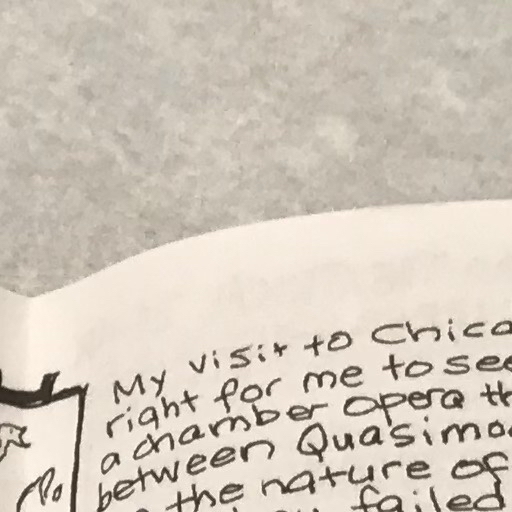 My visit to Chica
right for me to see
a chamber opera th
between Quasimo
the nature of
failed